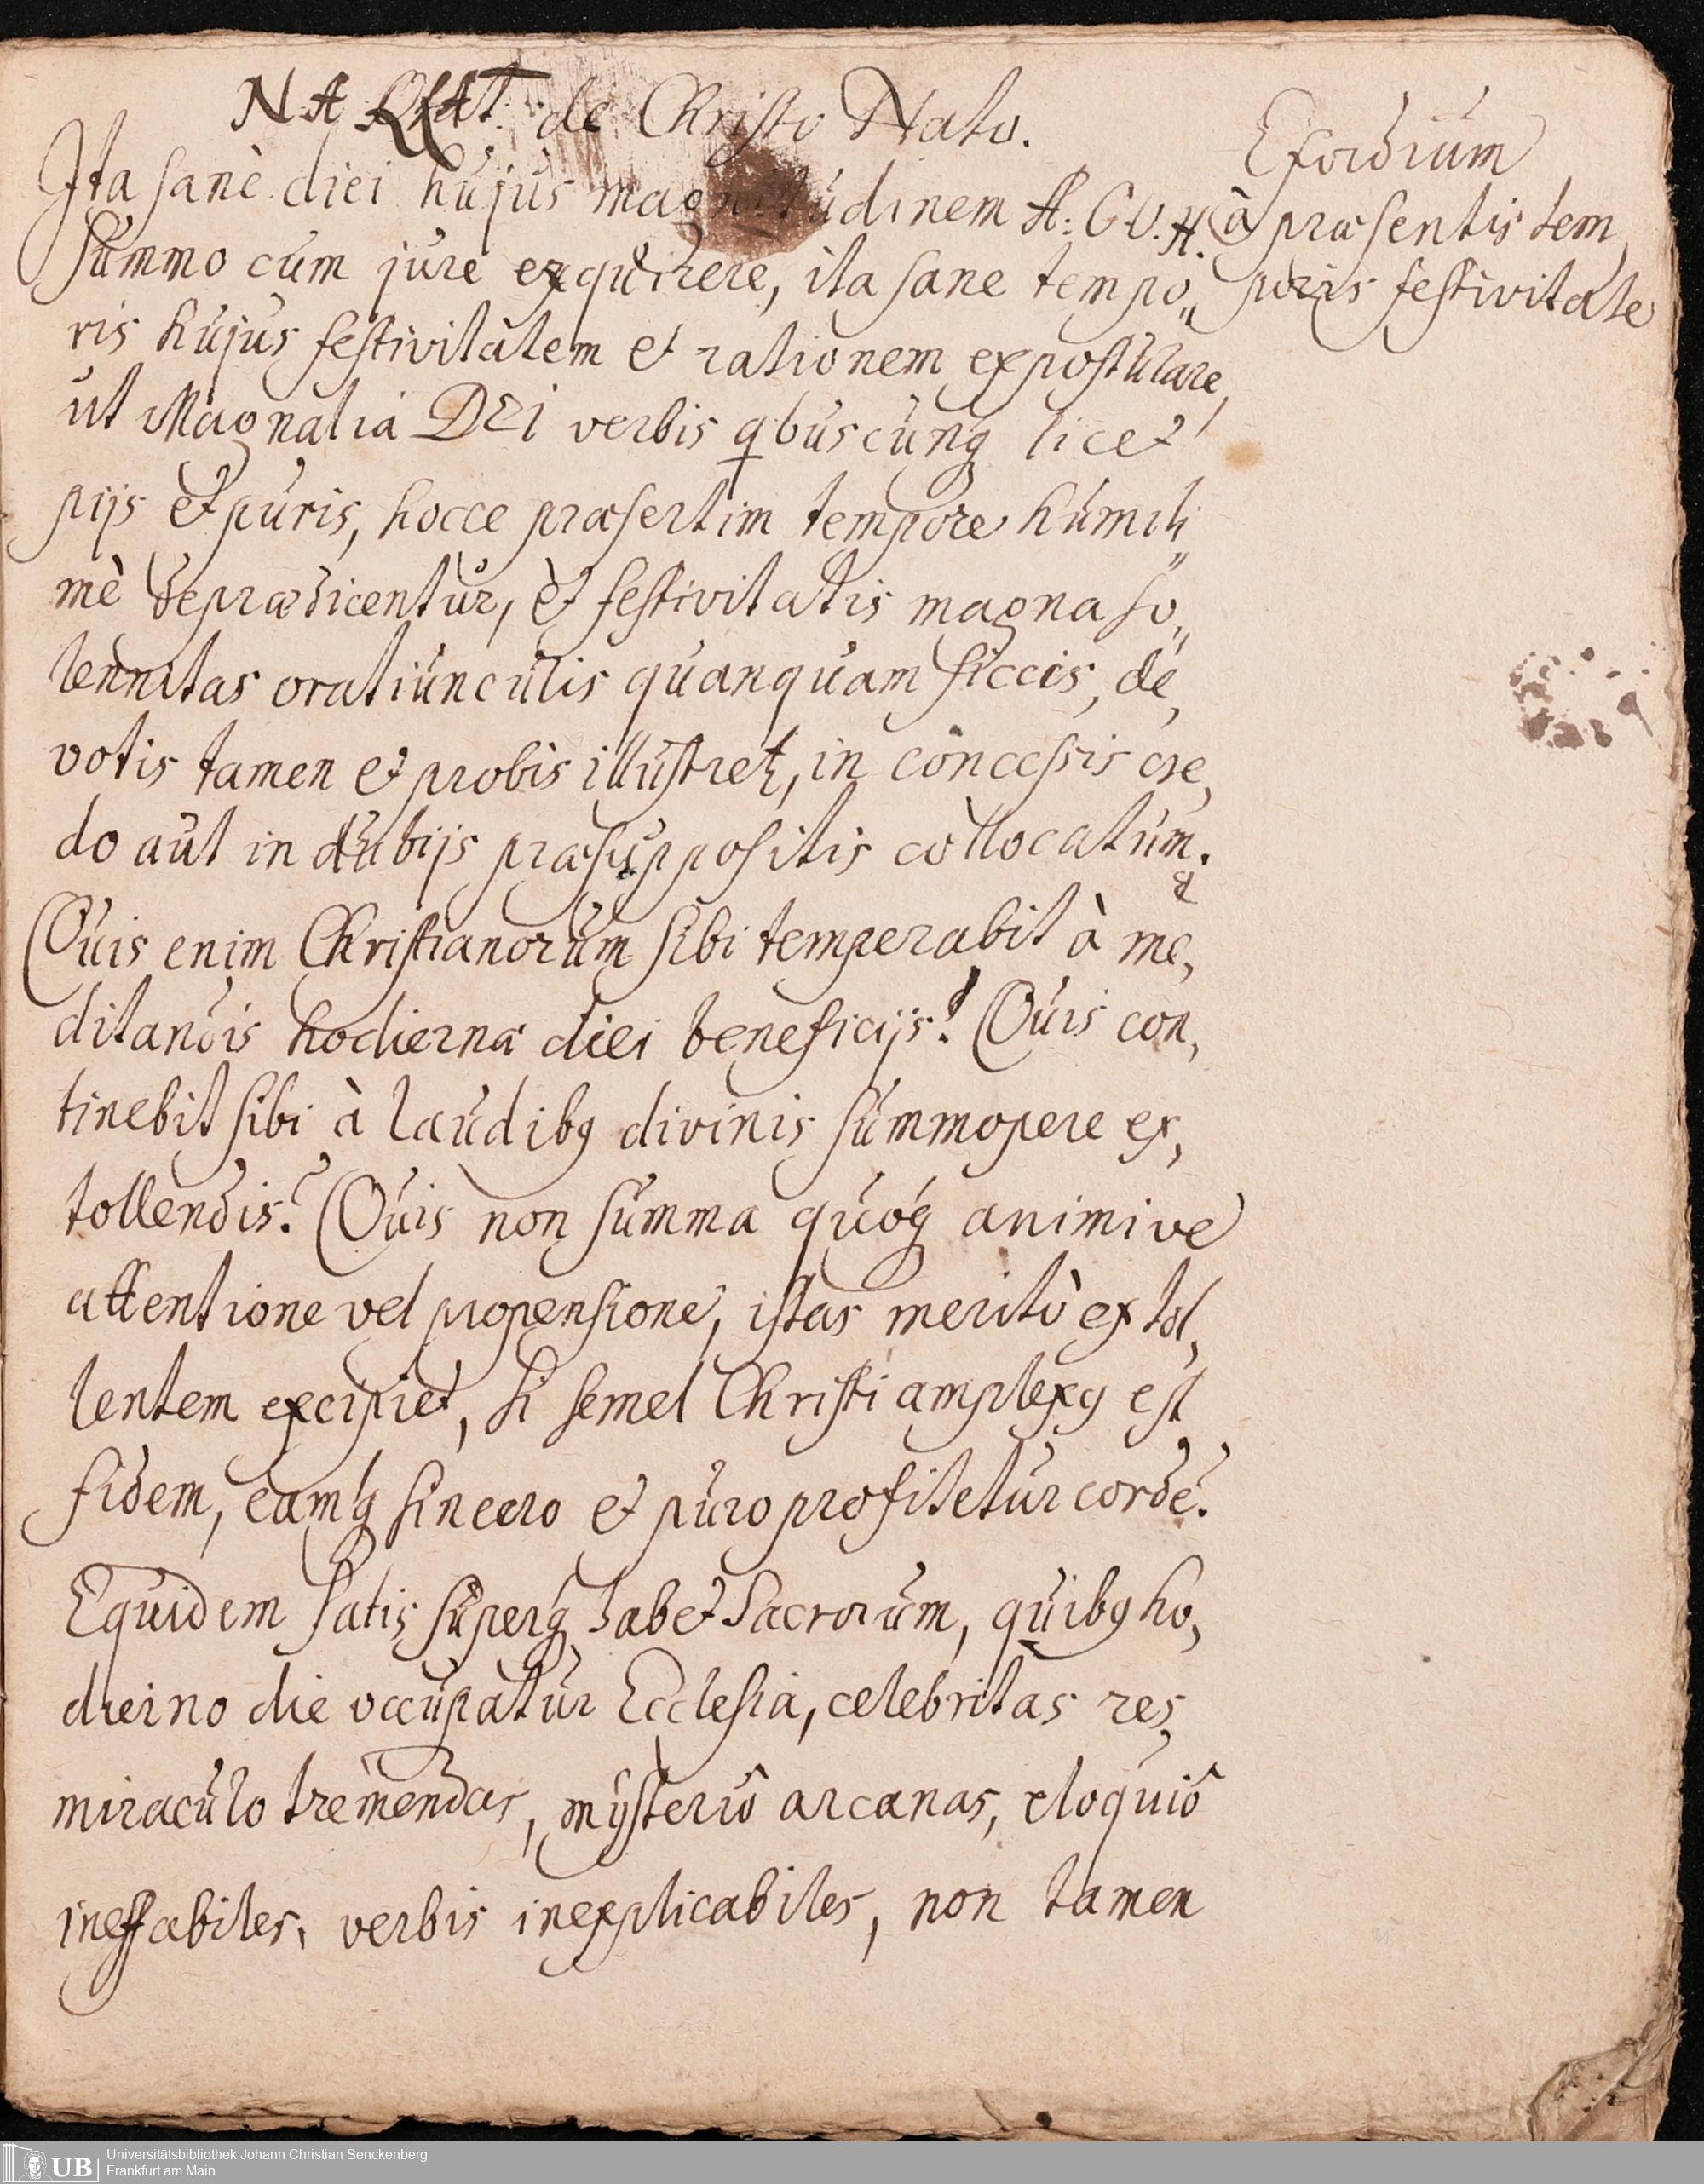 de Christo Nato.
Exordium
à præsentis tem,
poris festivitate
Ita sanè diei hujus magnitudinem A: C V. H.
summo cum jure exquirere, ita sane tempo„
ris hujus festivitatem et rationem expostulare,
ut Magnalia DEI verbis qbuscunq licet
pijs et puris, hocce præsertim tempore humili„
mè deprædicentur, et festivitatis magna so„
lennitas oratiunculis quanquam siccis, de,
votis tamen et probis illustret, in concessis cre,
do aut in dubijs præsuppositis collocatum.
Quis enim Christianorum sibi temperabit à me,
ditandis hodierna diei beneficijs? Quis con,
tinebit sibi à laudibq divinis summopere ex,
tollendis? Quis non summa quóq animi ve
attentione vel propensione, istas meritò extol,
lentem excipiet, si semel Christi amplexq est
fidem, eamq sincero et puro profitetur corde?
Equidem satis superq habet Sacrorum, quibq ho,
dierno die occupatur Ecclesia, celebritas res,
miraculo tremendas, mÿsteriô arcanas, eloquiô
ineffabiles, verbis inexplicabiles, non tamen
UB
Universitätsbibliothek Johann Christian Senckenberg
Frankfurt am Main